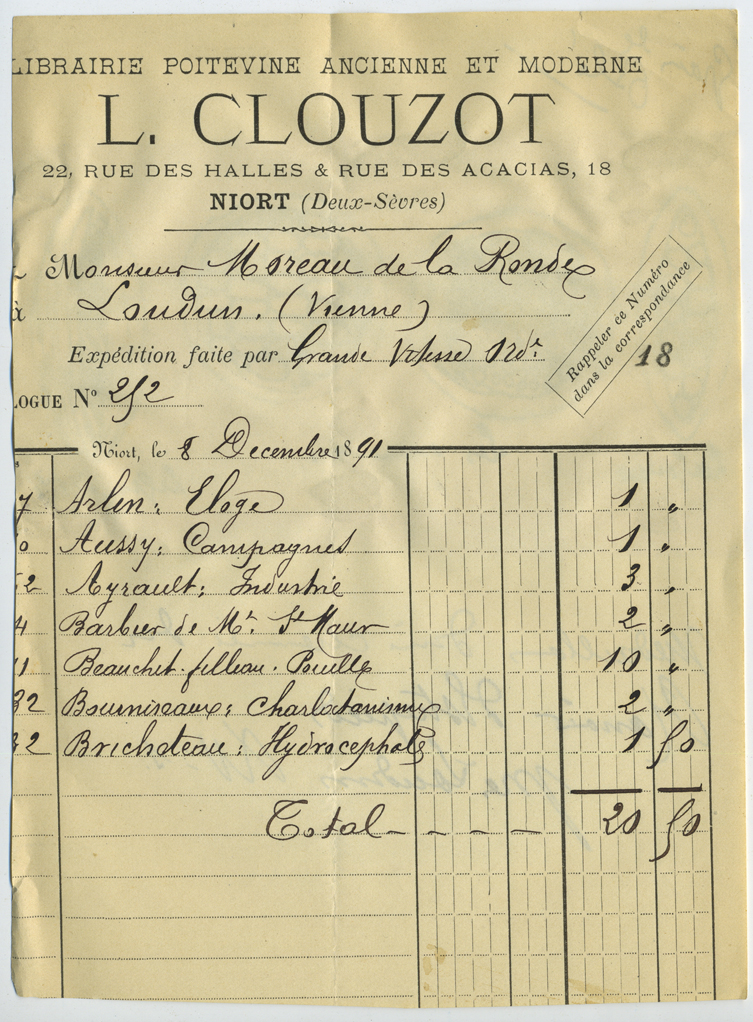 LIBRAIRIE POITEVINE ANCIENNE ET MODERNE
L. CLOUZOT
22, RUE DES HALLES & RUE DES ACACIAS, 18
NIORT (Deux-Sèvres)
Monsieur Moreau de la Ronde
à Loudun. (Vienne)
Rappeler ce Numéro
dans la correspondance
18
Expédition faite par Grande Vitesse Ordre
LOGUE N° 252
Niort, le 8 Decembre 1891
7 Arlen: Eloge 1 "
0 Aussy: Campagnes 1 "
52 Ayrault: Industrie 3 "
4 Barbier de Mt. St Maur 2 "
11 Beauchet-filleau. Pouillé 10 "
32 Bournizeaux: Charlatanisme 2 "
32 Bricheteau: Hydrocephale 1 50
Total - - - - 20 50